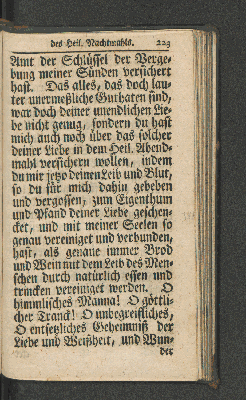 des Heil. Nachtmahls. 223
Amt der Schlüssel der Verge-
bung meiner Sünden versichert
hast. Das alles, das doch lau-
ter unermeßliche Guthaten sind,
war doch deiner unendlichen Lie-
be nicht genug, sondern du hast
mich auch noch über das solcher
deiner Liebe in dem Heil. Abend-
mahl versichern wollen, indem
du mir jetzo deinen Leib und Blut,
so du für mich dahin gegeben
und vergossen, zum Eigenthum
und Pfand deiner Liebe geschen-
cket, und mit meiner Seelen so
genau vereiniget und verbunden,
hast, als genaue immer Brod
und Wein mit dem Leib des Men-
schen durch natürlich essen und
trincken vereiniget werden. O
himmlisches Manna! O göttli-
cher Tranck! O unbegreifliches,
O entsetzliches Geheimniß der
Liebe und Weißheit, und Wun-
der